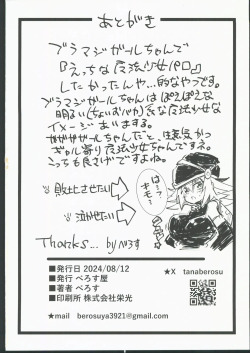 あとがき
ブラマジガールちゃんで
『えっちな魔法少女パロ』
したかったんや、…的なやつです。
ブラマジガールちゃんはぽえぽえな
明るい(ちょいおバカ)な魔法少女な
イメージあります。
ガガガガールちゃんだと、生意気かつ
ギャル寄り魔法少女ちゃんですネ。
こっちも良さげですよね。
はーっ?
キモ〜
敗北させたい
泣かせたい
Thanks... by べろす
■発行日 2024/08/12
■発行 べろす屋
■著者 べろす
■印刷所 株式会社栄光
★X tanaberosu
★mail berosuya3921@gmail.com